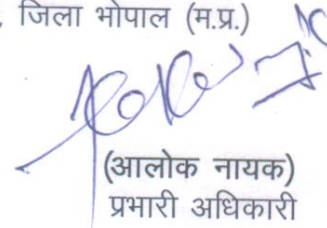 जिला भोपाल (म.प्र.)
(आलोक नायक)
प्रभारी अधिकारी